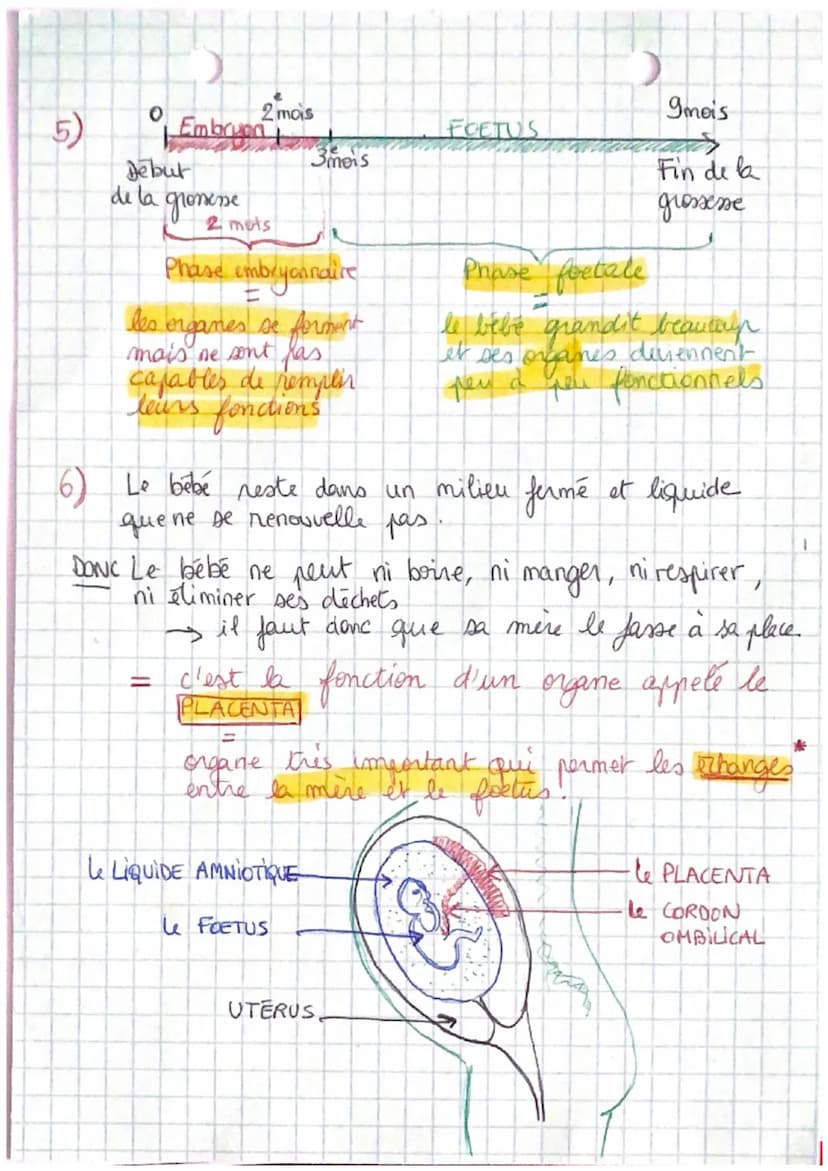 5)
0 Embryon 2e mois FOETUS 9 mois
3e mois
Début
de la grossesse
Fin de la
grossesse
2 mois
Phase embryonnaire
=
les organes se forment
mais ne sont pas
capables de remplir
leurs fonctions
Phase foetale
=
le bébé grandit beaucoup
et ses organes deviennent
peu à peu fonctionnels
6) Le bébé reste dans un milieu fermé et liquide
que ne se renouvelle pas.
DONC Le bébé ne peut ni boire, ni manger, ni respirer,
ni éliminer ses déchets
→ il faut donc que sa mère le fasse à sa place.
= c'est la fonction d'un organe appelé le
PLACENTA
=
organe très important qui permet les échanges*
entre la mère et le foetus.
le LIQUIDE AMNIOTIQUE
le FOETUS
UTERUS
le PLACENTA
le CORDON
OMBILICAL